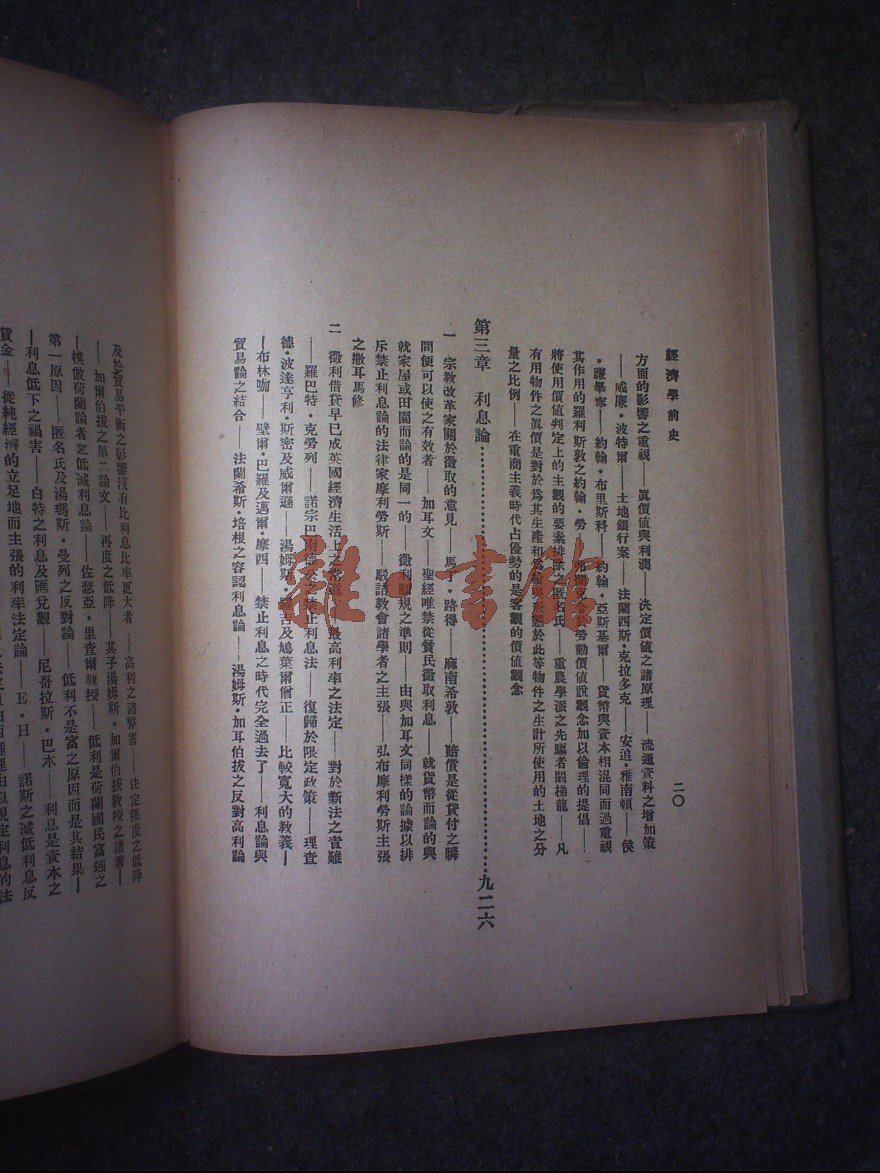 經濟學前史
二〇
方面的影響之重視——眞價值與利潤——決定價值之諸原理——流通資料之增加策
——威廉・波特爾——土地銀行案——法蘭西斯・克拉多克——安迫・雅南頓——侯
・謙學寧——約翰・布里斯科——約翰・亞斯基爾——貨幣與資本相混同而過重視
其作用的羅利斯敦之約翰・勞——於勞動價值說觀念加以倫理的提倡——
將使用價值判定上的主觀的要素排除之匿名氏——重農學派之先驅者閣梯龍——凡
有用物件之眞價是對於爲其生產和態於此等物件之生計所使用的土地之分
量之比例——在重商主義時代占優勢的是客觀的價值觀念
第三章 利息論……九二六
一 宗教改革家關於徵取的意見——馬丁・路得——麻南希敦——賠償是從貸付之瞬
間便可以使之有效者——加耳文——聖經唯禁從貧民徵取利息——就貨幣而論的與
就家屋或田園而論的是同一的——徵利制規之準則——由與加耳文同樣的論據以排
斥禁止利息論的法律家摩利勞斯——駁詰教會諸學者之主張——弘布摩利勞斯主張
之撒耳馬修
二 徵利借貸早已成英國經濟生活上之常道——最高利率之法定——對於新法之責難
——羅巴特・克勞列——諾宗巴南德公之禁止利息法——復歸於限定政策——理查
德・波達亨利・斯密及威爾遜——湯姆斯・羅吉及鳩葉爾僧正——比較寬大的教義—
—布林咖——璧爾・巴羅及邁爾・摩西——禁止利息之時代完全過去了——利息論與
貿易論之結合——法蘭希斯・培根之容認利息論——湯姆斯・加耳伯拔之反對高利論
及於貿易平衡之影響沒有比利息比率更大者——高利之諸弊害——法定限度之低降
——加爾伯拔之第二論文——再度之低降——其子湯姆斯・加爾伯拔教授之諸著—
—模倣荷蘭論者之低減利息論——佐瑟亞・里查爾教授——低利是荷蘭國民富強之
第一原因——匿名氏及湯瑪斯・曼列之反對論——低利不是富之原因而是其結果—
—利息低下之禍害——白特之利息及匯兌觀——尼哥拉斯・巴本——利息是資本之
賃金——從純經濟的立足地而主張的利率法定論——E・H——諾斯之減低利息反
雜・書館